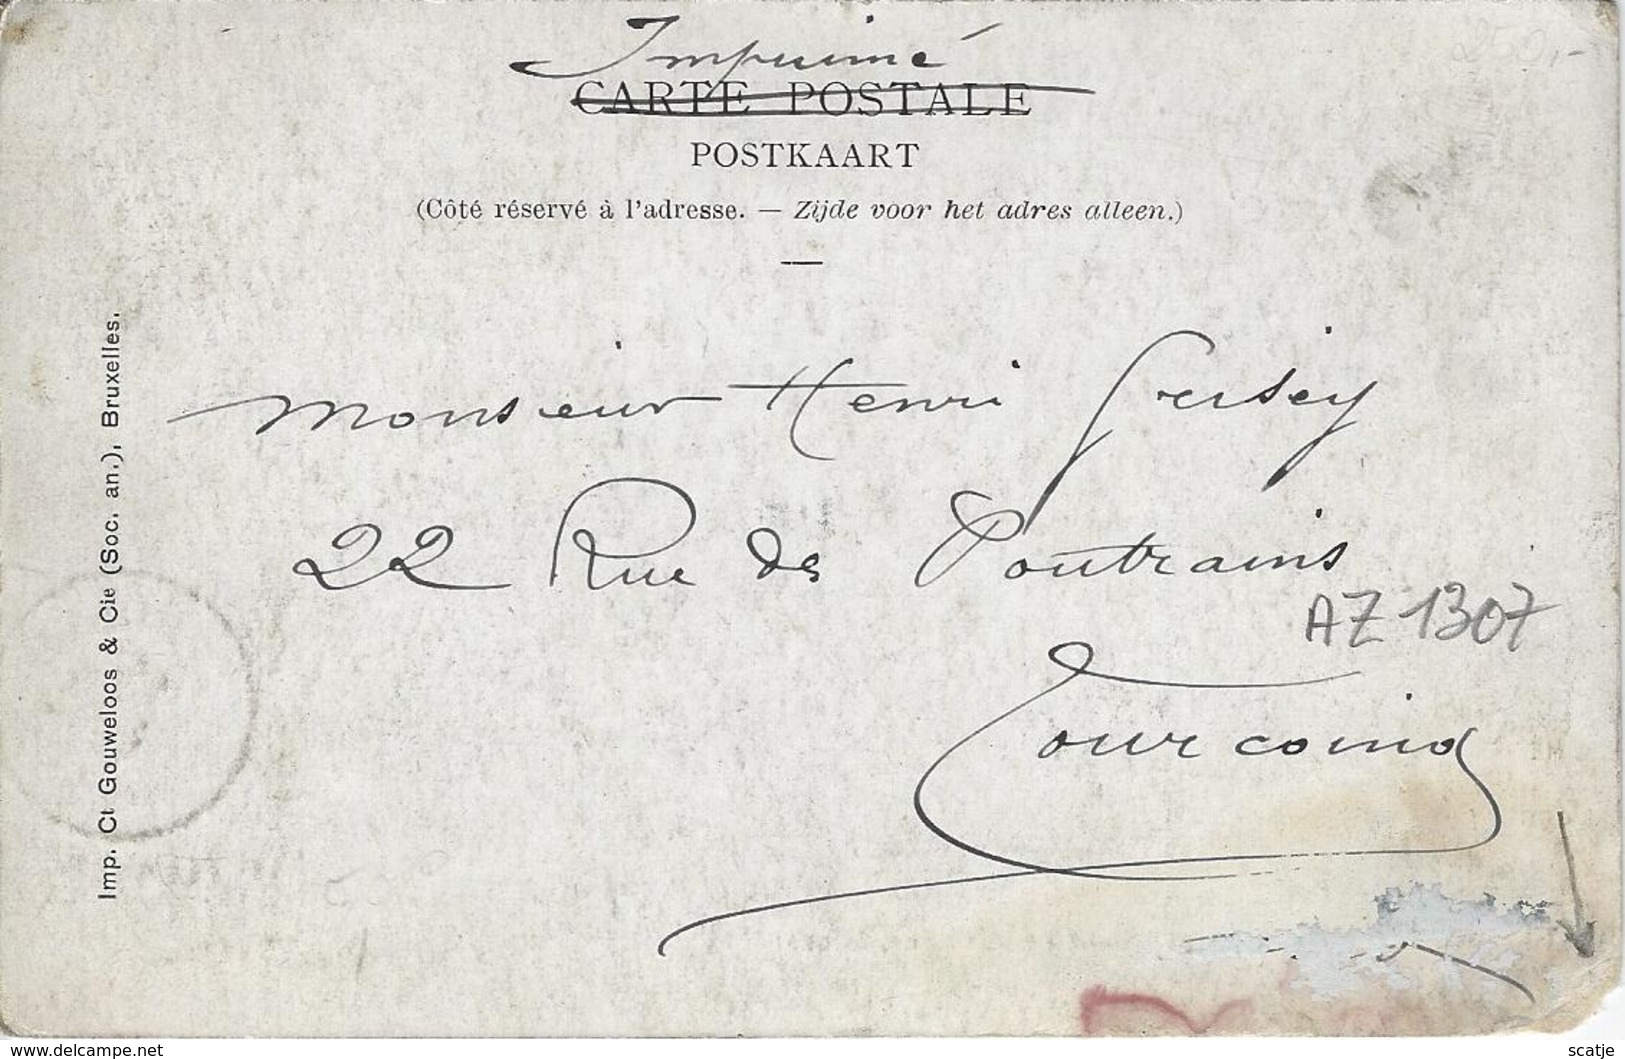 250,-
Imprimé
CARTE POSTALE
POSTKAART
(Côté réservé à l'adresse. — Zijde voor het adres alleen.)
Imp. Ct Gouweloos & Cie (Soc. an.), Bruxelles.
Monsieur Henri
22 Rue des Poutrains
AZ 1307
Tourcoing
www.delcampe.net
scatje